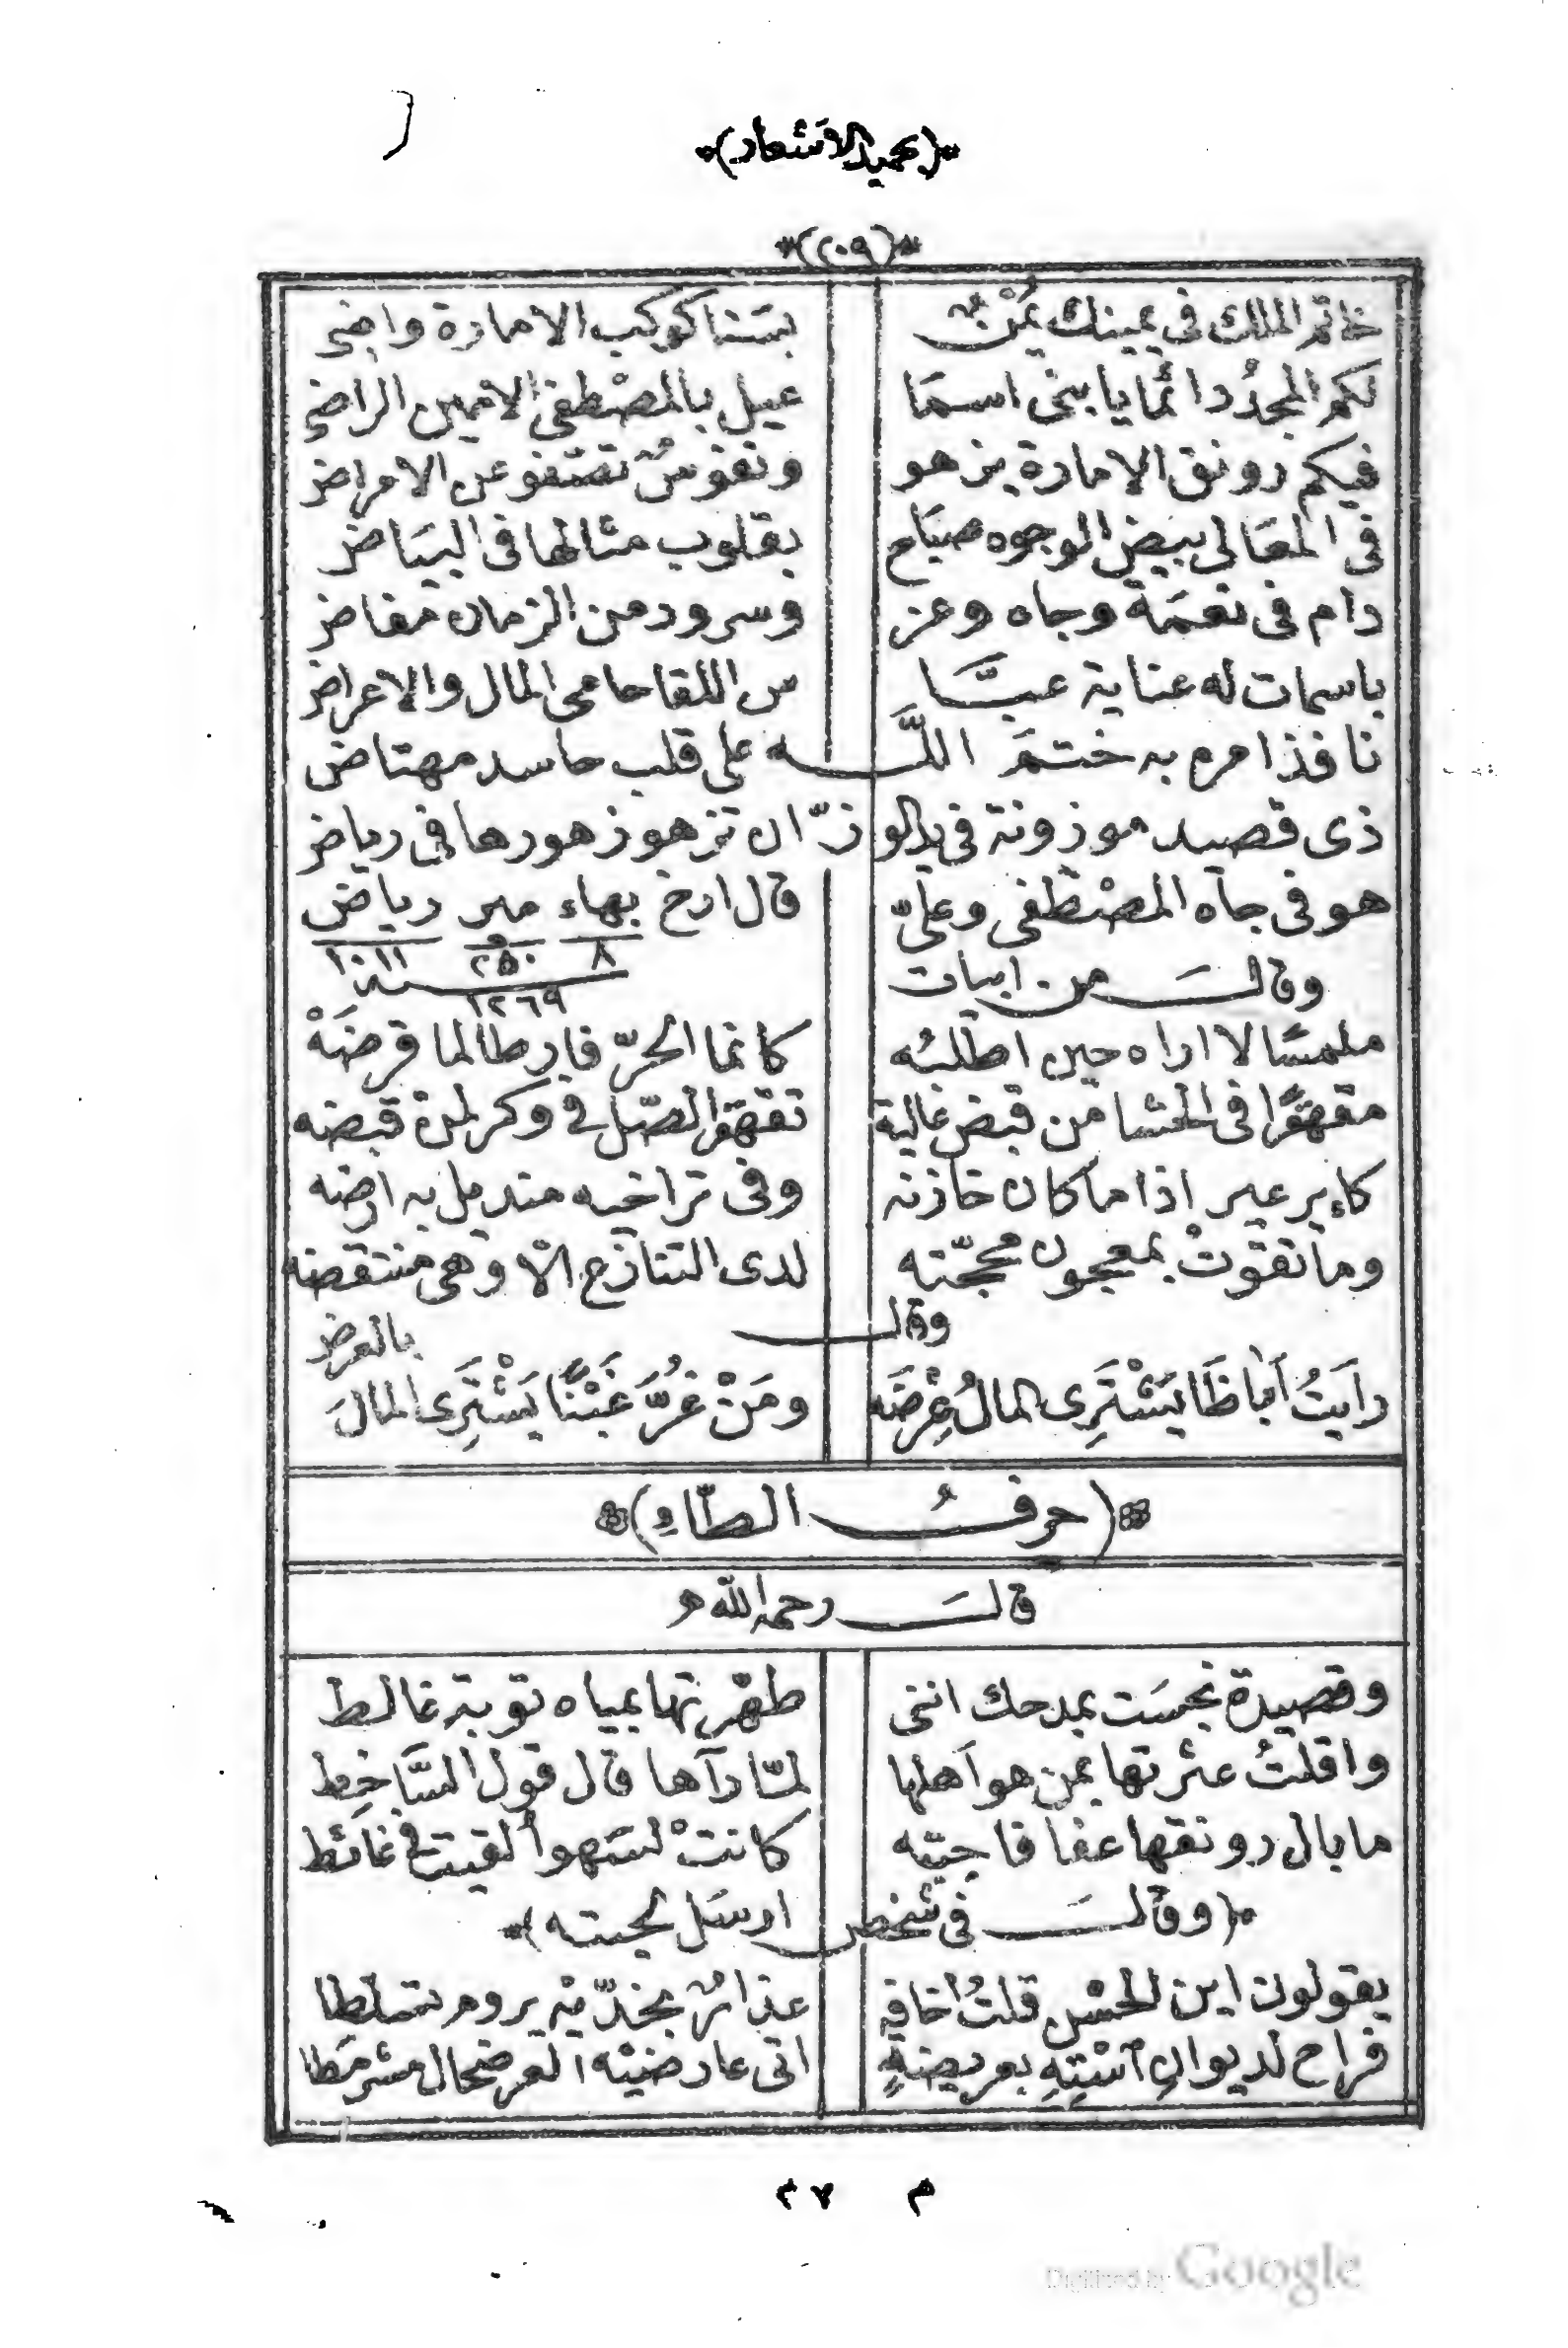 (بحميد الاشعار)
(٢٠٩)
خاتم الملك في يمينك يمنٌ بسنا كوكب الامارة واضى
لكم المجدُ دائما يا بنى اسمَا عيل بالمصْطفى الامين الراضى
فيكم رونق الامارة يزهو ونفوسٌ تصفو عن الامراض
فى المعَالى بيض الوجوه صبَاح بقلوب مثالها فى البيَاض
دام فى نعمَة وجاه وعز وسرور من الزمان مفاض
باسمات له عناية عبَّا س اللقا حامى المال والاعراض
نافذ امره به ختمَ اللَّه على قلب حاسد مهتاض
ذى قصيد موزونة فى يد الوزّان تزهو زهورها فى رياض
هو فى جاه المصْطفى وعلىّ قال ارخ بهاء مير رياض
٨ ٢٥٠ ١٠١١
سنة ١٢٦٩
وقالَ من ابيات
ملمسًا لا اراه حين اطلبُه كانما الحرّ فار طالما قرضَهْ
مقهقرًا فى الحشا من قبض غالية تقهقر الصّل فى وكر لمن قبضه
كاير عير اذا ما كان خازنه وفى تراخيه منديل به ارضه
وما تقوّتْ بمعجون محجّته لدى التنازع الّا وهى منتقضه
وقال
رايَتُ اَباظَا يَشْتَرِى المالُ عِرْضَه ومَنْ غُرَّ غَبْنًا يَشْتَرِى المالَ بالعرض
(حرفُ الطّاءِ)
قالَ رحمه الله
وقصيدة نجسَت بمدحك اننى طهّرتها بمياه توبة غالط
واقلتُ عثرتها بمن هو اَهلها لمّا رآها قال قول السَّاخِط
ما بال رونقها عفا فاجبته كانتْ لسَهو اُلقيت فى غائط
(وقالَ فى شخص ارسَل لحيته)
يقولون اين الحسْن قلتُ اخافه عذارٌ بخدّيْه يروم تسلطا
فراح لديوانِ آسْتِهِ بعريضةٍ اتى عارضيْه العرضحال مشرمَطا
م ٢٧
Digitized by Google